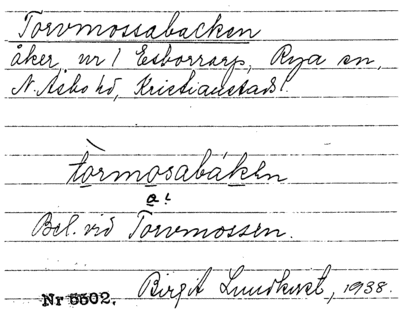 Torvmossabacken
åker nr 1 Esborrarp, Rya sn,
N. Åsbo hd, Kristianstads l.
tòrmosabáken
a:
Bel. vid Torvmossen.
Nr 5502. Birgit Lundkvist, 1938.